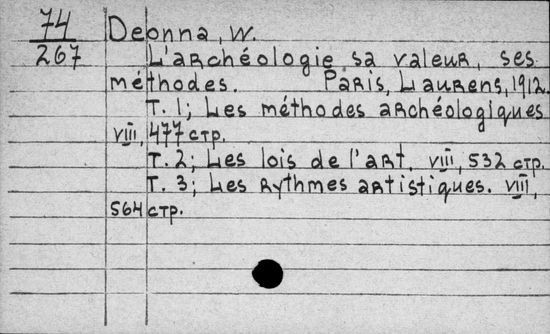 74
267
Deonna, W.
L'archéologie, sa valeur, ses
méthodes. Paris, Laurens, 1912.
T. 1; Les méthodes archéologiques
VIII, 477 стр.
T. 2; Les lois de l'art. VIII, 532 стр.
T. 3; Les rythmes artistiques. VIII,
564 стр.